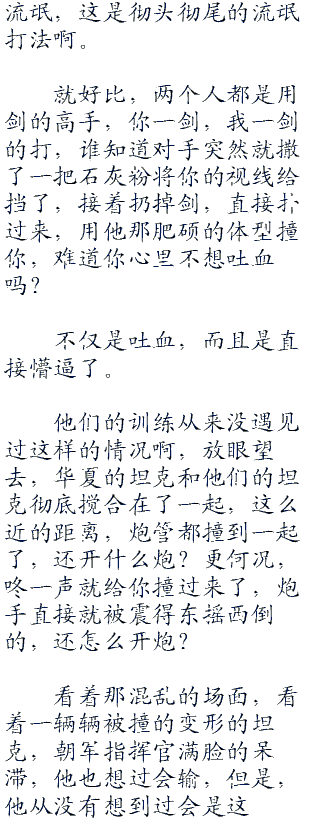 流氓，这是彻头彻尾的流氓
打法啊。
就好比，两个人都是用
剑的高手，你一剑，我一剑
的打，谁知道对手突然就撒
了一把石灰粉将你的视线给
挡了，接着扔掉剑，直接扑
过来，用他那肥硕的体型撞
你，难道你心里不想吐血
吗？
不仅是吐血，而且是直
接懵逼了。
他们的训练从来没遇见
过这样的情况啊，放眼望
去，华夏的坦克和他们的坦
克彻底搅合在了一起，这么
近的距离，炮管都撞到一起
了，还开什么炮？更何况，
咚一声就给你撞过来了，炮
手直接就被震得东摇西倒
的，还怎么开炮？
看着那混乱的场面，看
着一辆辆被撞的变形的坦
克，朝军指挥官满脸的呆
滞，他也想过会输，但是，
他从没有想到过会是这